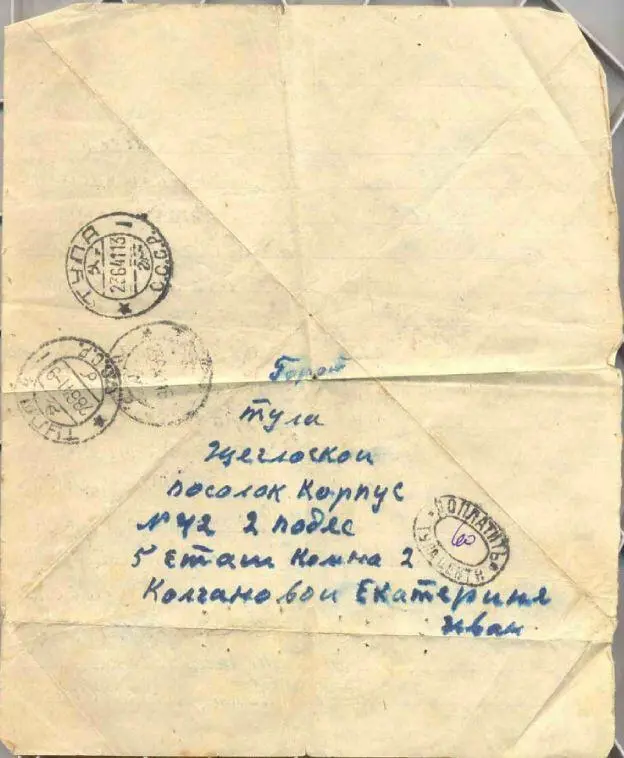 ТУЛА
С.С.С.Р.
2364113
С.С.С.Р
Город
тула
щеглоской
посолок Корпус
№ 42 2 подес
5 еташ Комна 2
Колгановои Екатерине
иван
ДОПЛАТИТЬ
60